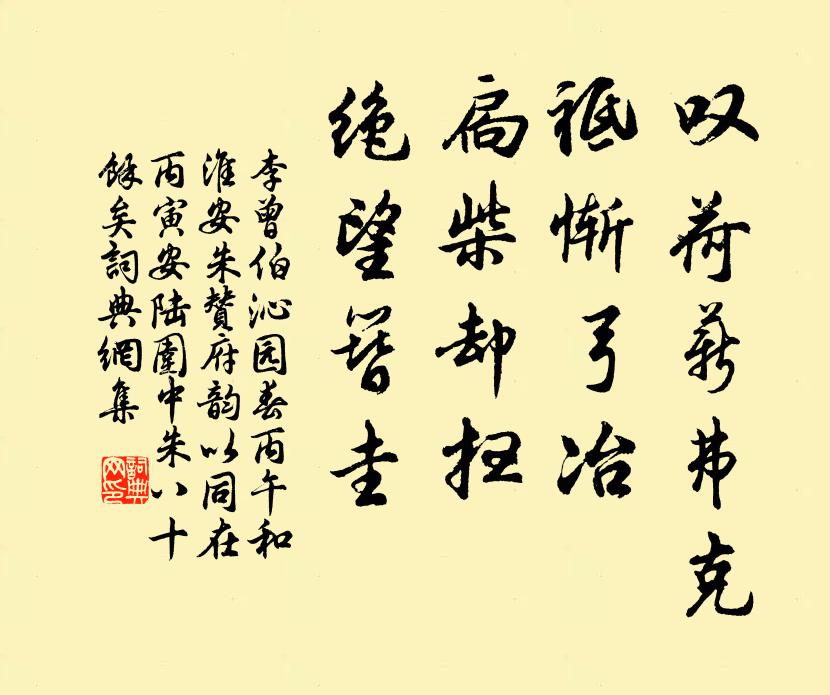 叹荷薪弗克
祗惭弓冶
扃柴却扫
绝望簪圭
李曾伯沁园春丙午和
淮安朱赞府韵以同在
丙寅安陆圍中朱八十
馀矣詞典網集
詞典
网印